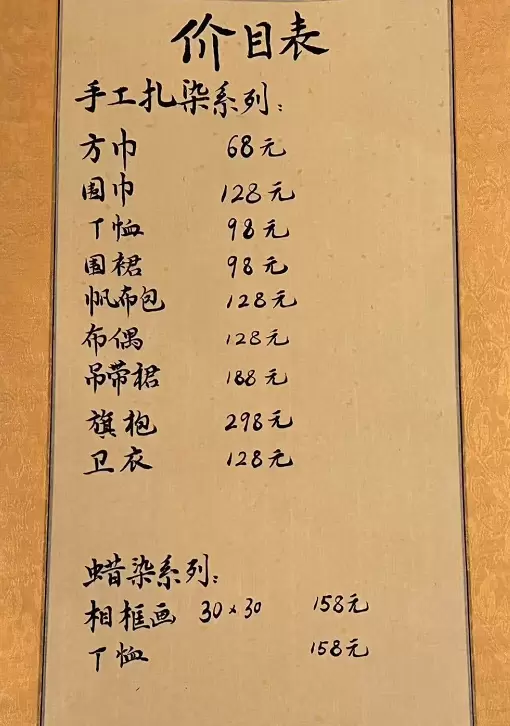 价目表
手工扎染系列:
方巾 68元
围巾 128元
T恤 98元
围裙 98元
帆布包 128元
布偶 128元
吊带裙 188元
旗袍 298元
卫衣 128元
蜡染系列:
相框画 30×30 158元
T恤 158元